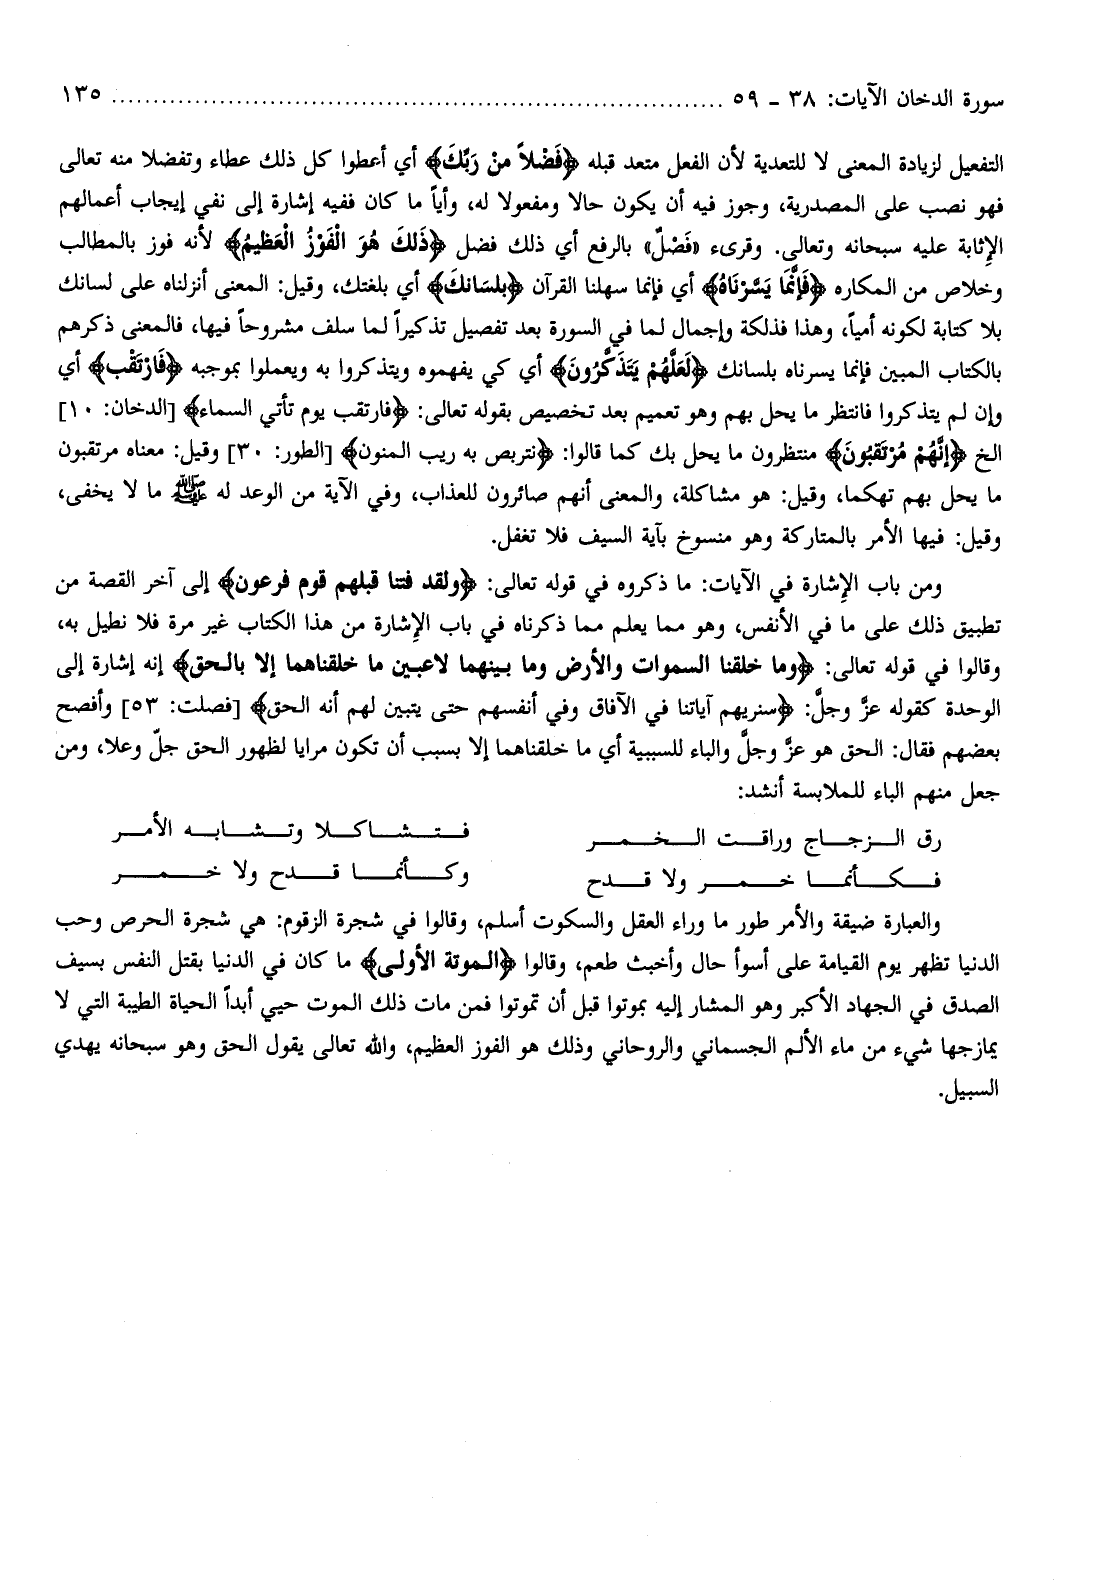 سورة الدخان الآيات: ٣٨ ـ ٥٩ ........................................................................ ١٣٥
التفعيل لزيادة المعنى لا للتعدية لأن الفعل متعد قبله ﴿فَضْلاً مِنْ رَبِّكَ﴾ أي أعطوا كل ذلك عطاء وتفضلا منه تعالى
فهو نصب على المصدرية، وجوز فيه أن يكون حالا ومفعولا له، وأياً ما كان ففيه إشارة إلى نفي إيجاب أعمالهم
الإثابة عليه سبحانه وتعالى. وقرىء «فَضْلٌ» بالرفع أي ذلك فضل ﴿ذَلكَ هُوَ الْفَوْزُ الْعَظيمُ﴾ لأنه فوز بالمطالب
وخلاص من المكاره ﴿فَإِنَّمَا يَسَّرْنَاهُ﴾ أي فإنما سهلنا القرآن ﴿بلسَانكَ﴾ أي بلغتك، وقيل: المعنى أنزلناه على لسانك
بلا كتابة لكونه أمياً، وهذا فذلكة وإجمال لما في السورة بعد تفصيل تذكيراً لما سلف مشروحاً فيها، فالمعنى ذكرهم
بالكتاب المبين فإنما يسرناه بلسانك ﴿لَعَلَّهُمْ يَتَذَكَّرُونَ﴾ أي كي يفهموه ويتذكروا به ويعملوا بموجبه ﴿فَارْتَقْب﴾ أي
وإن لم يتذكروا فانتظر ما يحل بهم وهو تعميم بعد تخصيص بقوله تعالى: ﴿فارتقب يوم تأتي السماء﴾ [الدخان: ١٠]
الخ ﴿إنَّهُمْ مُرْتَقبُونَ﴾ منتظرون ما يحل بك كما قالوا: ﴿نتربص به ريب المنون﴾ [الطور: ٣٠] وقيل: معناه مرتقبون
ما يحل بهم تهكما، وقيل: هو مشاكلة، والمعنى أنهم صائرون للعذاب، وفي الآية من الوعد له ﷺ ما لا يخفى،
وقيل: فيها الأمر بالمتاركة وهو منسوخ بآية السيف فلا تغفل.
ومن باب الإشارة في الآيات: ما ذكروه في قوله تعالى: ﴿ولقد فتنا قبلهم قوم فرعون﴾ إلى آخر القصة من
تطبيق ذلك على ما في الأنفس، وهو مما يعلم مما ذكرناه في باب الإشارة من هذا الكتاب غير مرة فلا نطيل به،
وقالوا في قوله تعالى: ﴿وما خلقنا السموات والأرض وما بينهما لاعبين ما خلقناهما إلا بالحق﴾ إنه إشارة إلى
الوحدة كقوله عزَّ وجلَّ: ﴿سنريهم آياتنا في الآفاق وفي أنفسهم حتى يتبين لهم أنه الحق﴾ [فصلت: ٥٣] وأفصح
بعضهم فقال: الحق هو عزَّ وجلَّ والباء للسببية أي ما خلقناهما إلا بسبب أن تكون مرايا لظهور الحق جلّ وعلا، ومن
جعل منهم الباء للملابسة أنشد:
رق الـزجـاج وراقـت الـخـمـر فـتـشـاكـلا وتـشـابـه الأمـر
فـكـأنمـا خـمـر ولا قـدح وكـأنمـا قـدح ولا خـمـر
والعبارة ضيقة والأمر طور ما وراء العقل والسكوت أسلم، وقالوا في شجرة الزقوم: هي شجرة الحرص وحب
الدنيا تظهر يوم القيامة على أسوأ حال وأخبث طعم، وقالوا ﴿الموتة الأولى﴾ ما كان في الدنيا بقتل النفس بسيف
الصدق في الجهاد الأكبر وهو المشار إليه بموتوا قبل أن تموتوا فمن مات ذلك الموت حيي أبداً الحياة الطيبة التي لا
يمازجها شيء من ماء الألم الجسماني والروحاني وذلك هو الفوز العظيم، والله تعالى يقول الحق وهو سبحانه يهدي
السبيل.